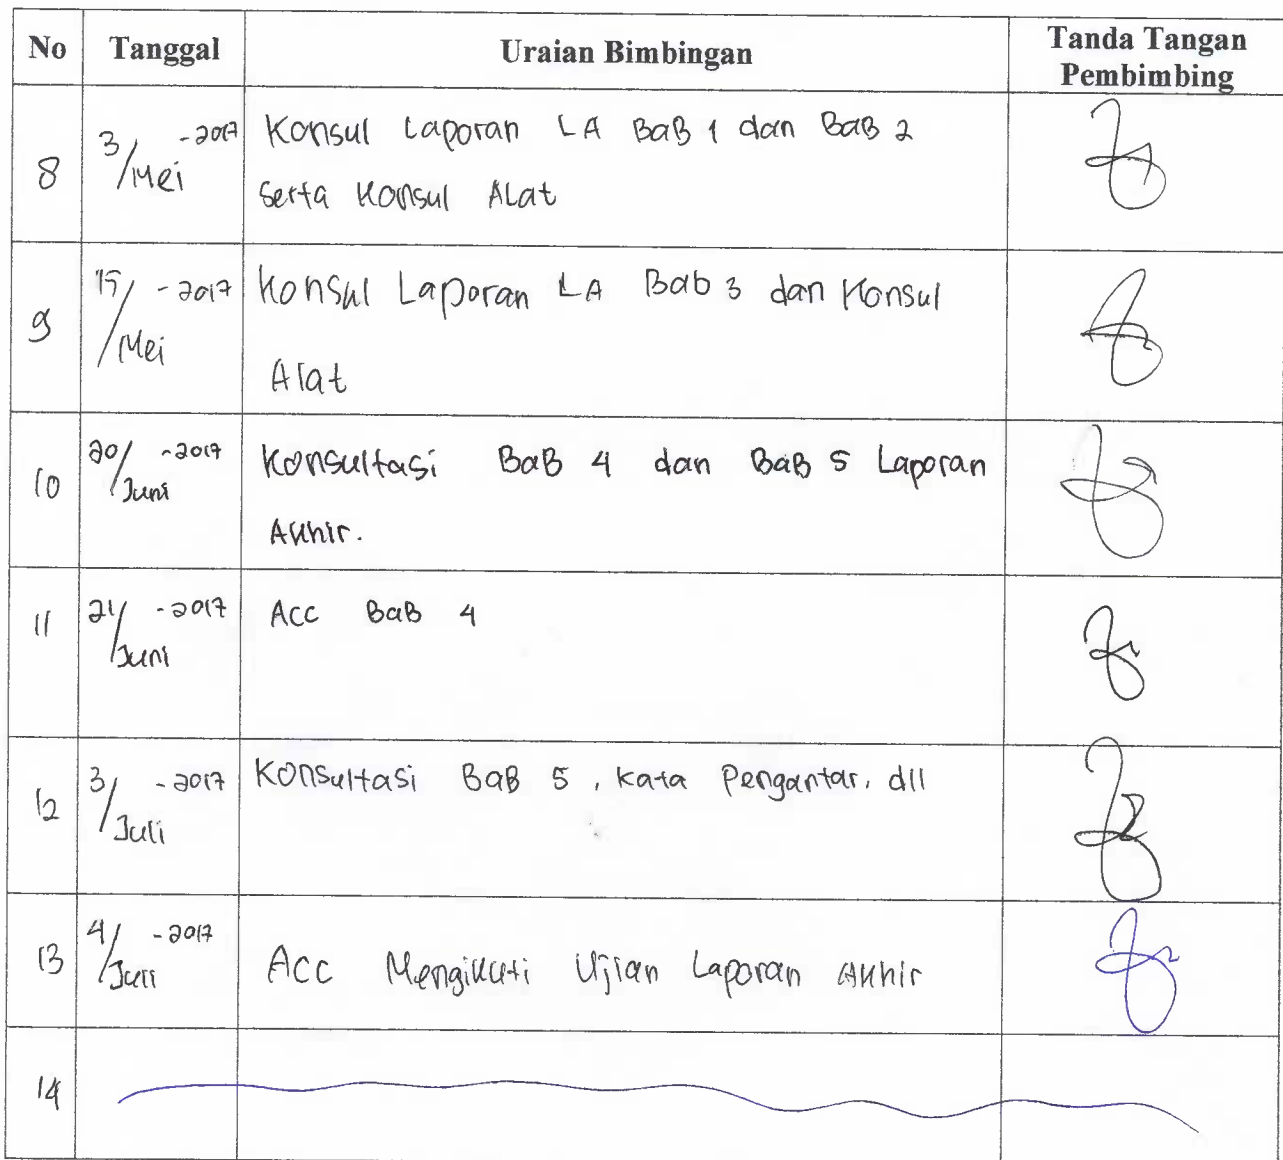 No Tanggal Uraian Bimbingan Tanda Tangan
Pembimbing
8 3/Mei -2017 Konsul Laporan LA BaB 1 dan BaB 2
Serta Konsul Alat
9 15/Mei -2017 Konsul Laporan LA Bab 3 dan Konsul
Alat
10 20/Juni -2017 Konsultasi BaB 4 dan BaB 5 Laporan
Akhir.
11 21/Juni -2017 Acc BaB 4
12 3/Juli -2017 Konsultasi BaB 5, Kata Pengantar, dll
13 4/Juli -2017 Acc Mengikuti Ujian Laporan Akhir
14